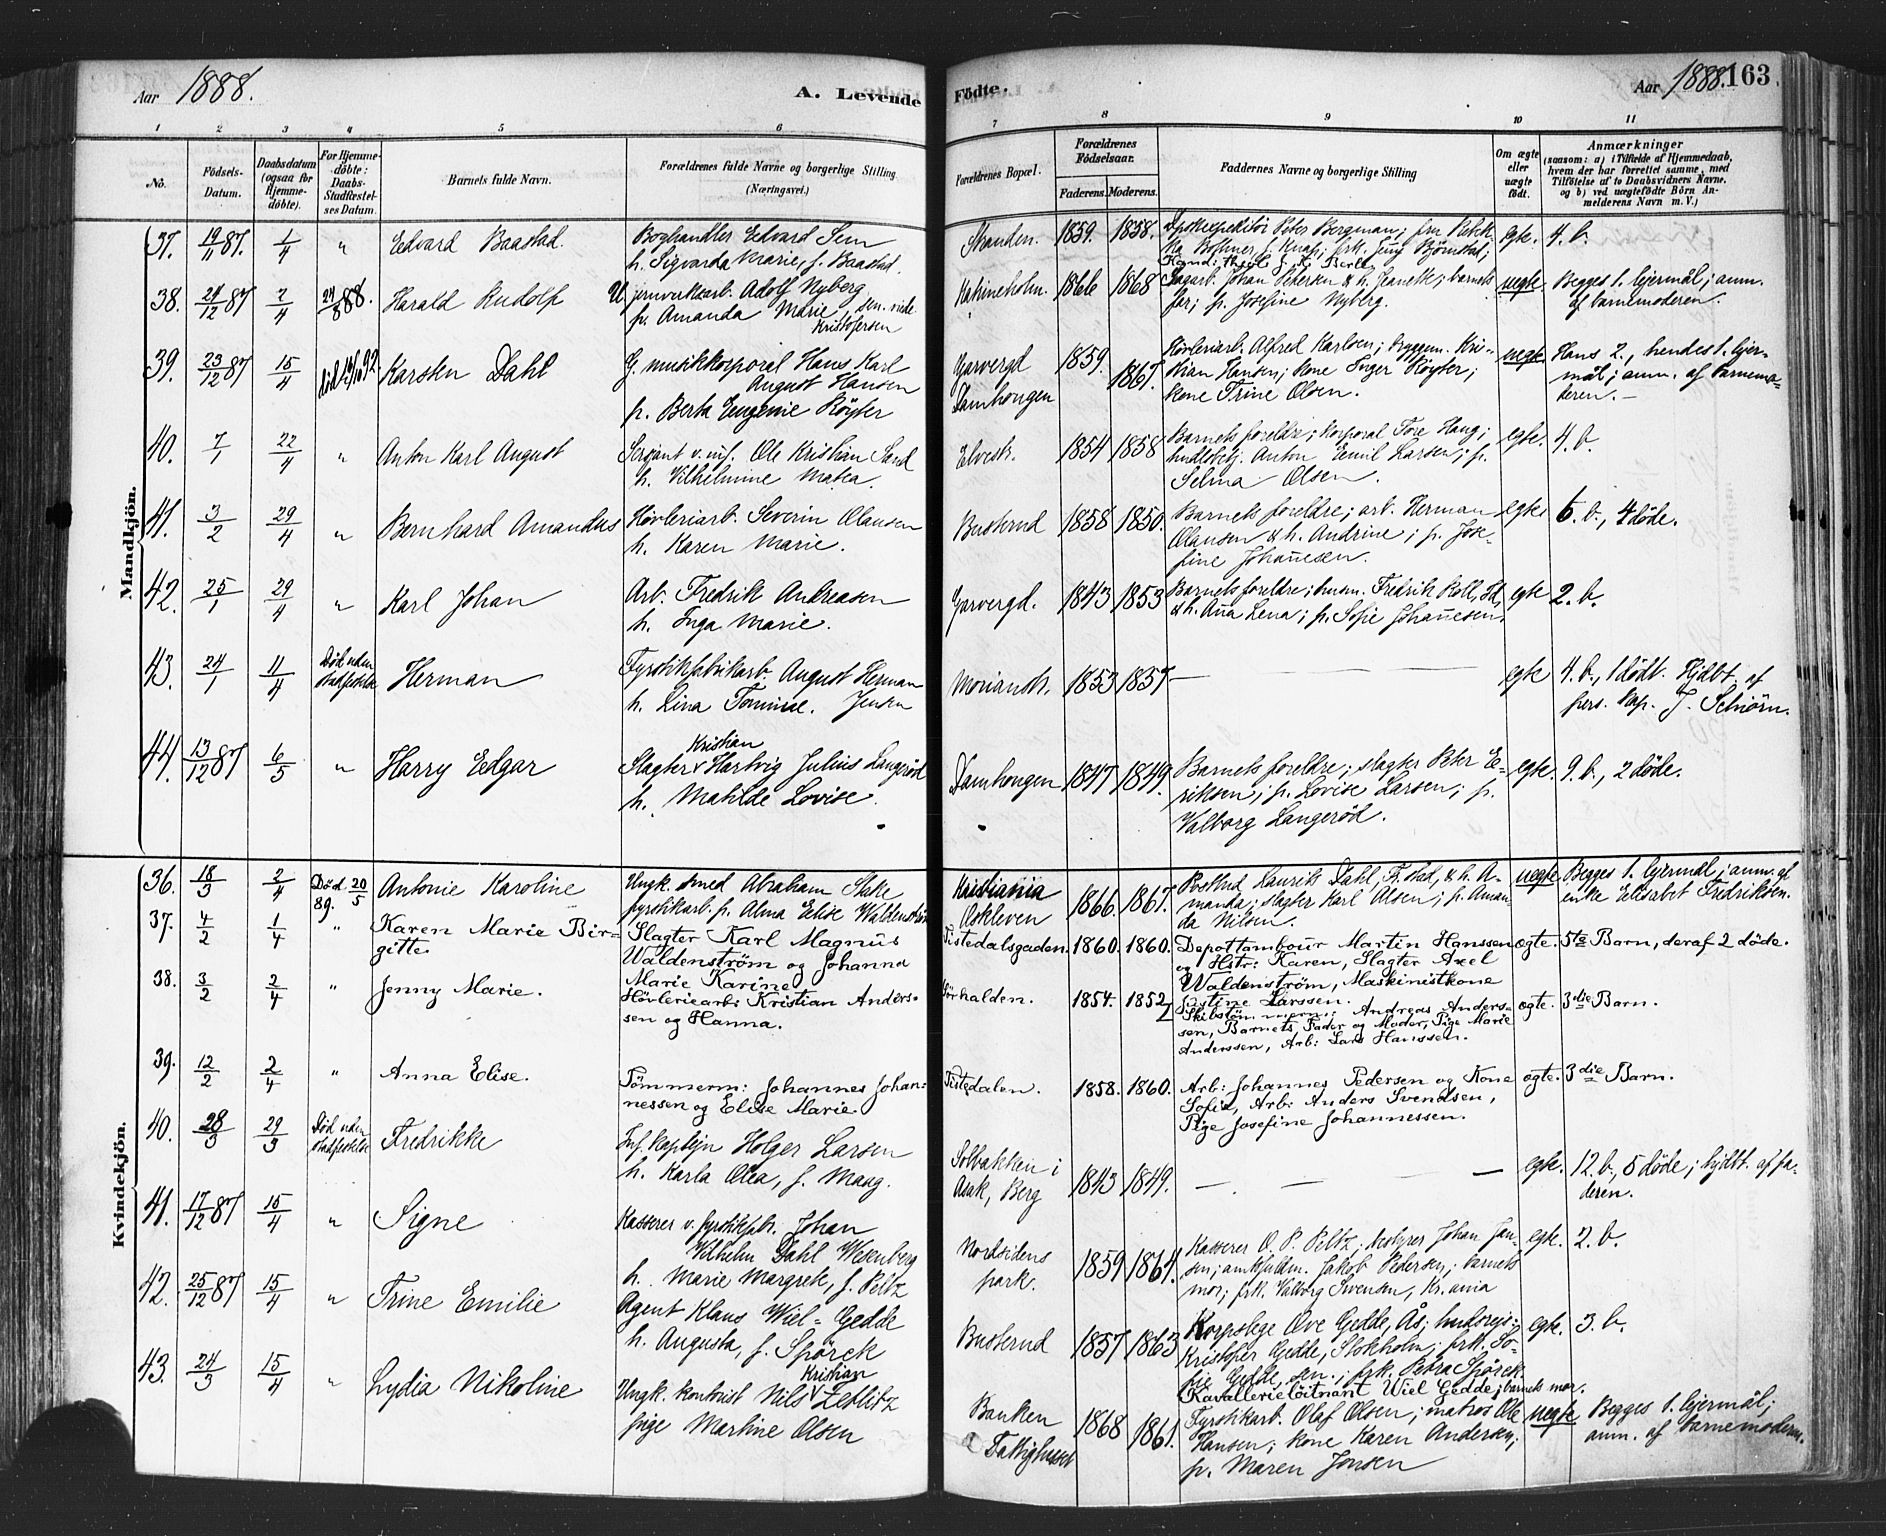 Aar 1888. A. Levende
Födte. Aar 1888. 163
1 2 3 4 5 6 7 8 9 10 11
No. Födsels-Datum. Daabsdatum (ogsaa for Hjemme-döbte). For Hjemme-döbte: Daabs-Stadfæstel-ses Datum. Barnets fulde Navn. Forældrenes fulde Navne og borgerlige Stilling (Næringsvei.) Forældrenes Bopæl. Forældrenes Födselsaar. Faderens. Moderens. Faddernes Navne og borgerlige Stilling Om ægte eller uægte födt. Anmærkninger (saasom: a) i Tilfælde af Hjemmedaab, hvem der har forrettet samme, med Tilföielse af to Daabsvidners Navne, og b) ved uægtefödte Börn An-melderens Navn m. V.)
Mandkjön.
37. 19/11 87. 1/4 " Edvard Baastad. Boghandler Edvard Sem
h. Sigvarda Marie, f. Baastad.
Stranden. 1859. 1858. Peter Bergman; fru
Björnstad; egte. 4. b.
38. 24/12 87 2/4 24/8 88. Harald Rudolf U jernverksarb. Adolf Nyberg
p. Amanda Marie, sen. vide
Kristofersen
Katrineholm. 1866 1868 Sagarb. Johan Petersen & h. Jeanette; barnets
far; p. Josefine Nyberg. uegte Begges 1. lejermål; anm.
af barnemoderen.
39. 23/12 87 15/4 Karsten Dahl G. musikkorporal Hans Karl
August Hansen
p. Berta Eugenie Röyter
Garvergd
Damhougen 1859. 1867. Hövleriarb. Alfred Karlsen; byggem. Kri-
stian Hansen; kone Inger Röyter;
kone Trine Olsen. uegte. Hans 2., hendes 1. lejer-
mål; anm. af barnemo-
deren.
40. 7/1 22/4 " Anton Karl August Sersjant v. inf. Ole Kristian Sand
h. Vilhelmine Matea.
Elvestr. 1854 1858 Barnets foreldre; korporal Tore Haug;
Anton Emil Larsen; p.
Selma Olsen. egte. 4. b.
41. 3/2 29/4 " Bernhard Amandus Hövleriarb. Severin Olausen
h. Karen Marie.
Busterud 1858 1850. Barnets foreldre; arb. Herman
Olausen & h. Andrine; p. Jose-
fine Johanesen. egte 6. b., 4 döde.
42. 25/1 29/4 " Karl Johan Arb. Fredrik Andreasen
h. Inga Marie.
Garvergd. 1843 1853 Barnets foreldre; husm. Fredrik Koll, Id,
& h. Ana Lena; p. Sofie Johanesen. egte 2. b.
43. 24/1 11/4 Död uden
stadfestelse Herman Fyrstikfabrikarb. August Herman
h. Lina Tomine. Jensen
Morianstr. 1853 1857 — egte 4. b., 1 dödf. Hjdbt. af
pers. kap. J. Schiörn.
44. 13/12 87 6/5 " Harry Edgar Kristian
Slagter Hartvig Julius Langeröd
h. Matilde Lovise.
Damhougen 1847 1849. Barnets foreldre; slagter Peter E-
riksen; p. Lovise Larsen; p.
Valborg Langeröd. egte. 9. b., 2 döde.
Kvindekjön.
36. 18/3 2/4 Död 20/5
89. Antonie Karoline Ungk. smed Abraham Stake
fyrstikarb. p. Alma Elise Waldenström
Kristiania
Oskleven 1866. 1867. Postbud Laurits Dahl, F.stad, & h. A-
manda; slagter Karl Olsen; p. Aman-
da Nilsen. uegte Begges 1. lejermål; anm. af
enke Elisabet Fredriksen.
37. 4/2 1/4 " Karen Marie Bir-
gitte. Slagter Karl Magnus
Waldenström og Johanna
Marie Karine
Tistedalsgaden. 1860. 1860. Depottambour Martin Hanssen
og Hstr: Karen, Slagter Axel
Waldenström, Maskinistkone
Kristine Larssen. ægte. 5te Barn, deraf 2 døde.
38. 3/2 2/4 " Jenny Marie. Hövleriearb: Kristian Anders-
sen og Hanna.
Sörhalden. 1854. 1852 Skibstömmerm: Andreas Anders-
sen, Barnets Fader og Moder, Pige Marie
Anderssen, Arb: Lars Hanssen. ægte. 3die Barn.
39. 12/2 2/4 " Anna Elise. Tömmerm: Johannes Johan-
nessen og Elise Marie
Tistedalen. 1858. 1860. Arb: Johannes Pedersen og Kone
Sofia, Arb: Anders Svendsen,
Pige Josefine Johannessen. ægte. 3die Barn.
40. 28/3 29/3 Död uden
stadfestelse Fredrikke Inf. kaptejn Holger Larsen
h. Karla Olea, f. Maug.
Solbakken i
Asak, Berg 1843 1849. — egte. 12. b., 5 döde; hjdbt. af fa-
deren.
41. 17/12 87 15/4 " Signe Kasserer v. fyrstikfabr. Johan
Vilhelm Dahl Wesenberg
h. Marie Margrete, f. Peltz
Nordsidens
park. 1859 1864. Kasserer O. P. Peltz; bestyrer Johan Jan-
sen; amtsfuldm. Jakob Pedersen; barnets
mor; frk. Valborg Svensen, Kr.ania egte. 2. b.
42. 25/12 87 15/4 " Trine Emilie Agent Klaus Wiel-Gedde
h. Augusta, f. Spörck
Busterud 1857 1863 Korpslæge Ove Gedde, Ås;
Kristofer Gedde, Stokholm; frk. So-
fie Gedde, sen.; frk. Petra Spörck
Kavalleriløitnant Wiel Gedde; barnets mor. egte. 3. b.
43. 24/3 15/4 " Lydia Nikoline Kristian
Ungk. kontorist Nils Zetlitz
pige Martine Olsen
Banken
Fattighuset 1868 1861. Fyrstikarb. Olaf Olsen; matros Ole
Hansen; kone Karen Andersen;
p. Maren Jensen uegte Begges 1. lejermål;
anm. af barnemoderen.